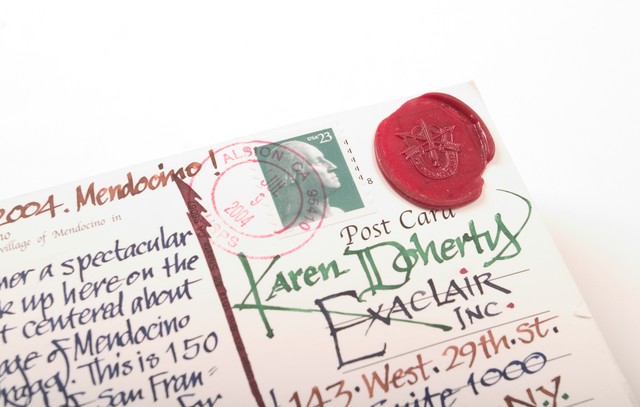 2004. Mendocino!
village of Mendocino in
a spectacular
up here on the
centered about
of Mendocino
. This is 150
San Fran=
USA 23
44448
ALBION CA 95410
2004
USPS
Post Card
Karen Doherty
Exaclair
Inc.
143. West. 29th. St.
Suite 1000
N.Y.